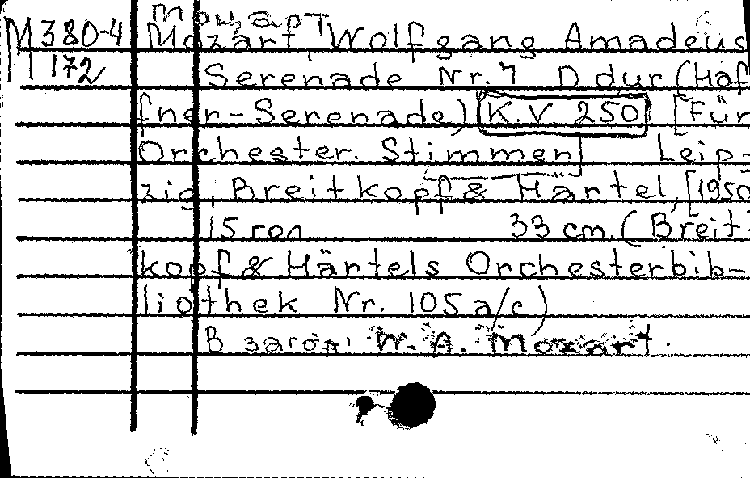 Моцарт
М380-4 Mozart, Wolfgang Amadeus
М172 Serenade Nr. 7 D dur (Haf
fner-Serenade) K.V 250 [Für
Orchester. Stimmen] Leip-
zig, Breitkopf & Härtel, [1950
15 гол 33 cm. (Breit-
kopf & Härtels Orchesterbib-
liothek Nr. 105 a/c)
В загол: W. A. Mozart.